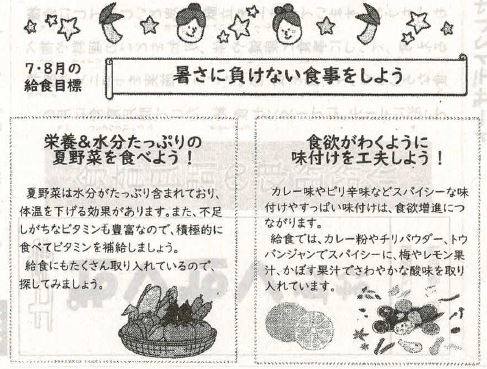 7・8月の
給食目標
暑さに負けない食事をしよう
栄養&水分たっぷりの
夏野菜を食べよう！
夏野菜は水分がたっぷり含まれており、
体温を下げる効果があります。また、不足
しがちなビタミンも豊富なので、積極的に
食べてビタミンを補給しましょう。
給食にもたくさん取り入れているので、
探してみましょう。
食欲がわくように
味付けを工夫しよう！
カレー味やピリ辛味などスパイシーな味
付けやすっぱい味付けは、食欲増進につ
ながります。
給食では、カレー粉やチリパウダー、トウ
バンジャンでスパイシーに、梅やレモン果
汁、かぼす果汁でさわやかな酸味を取り
入れています。